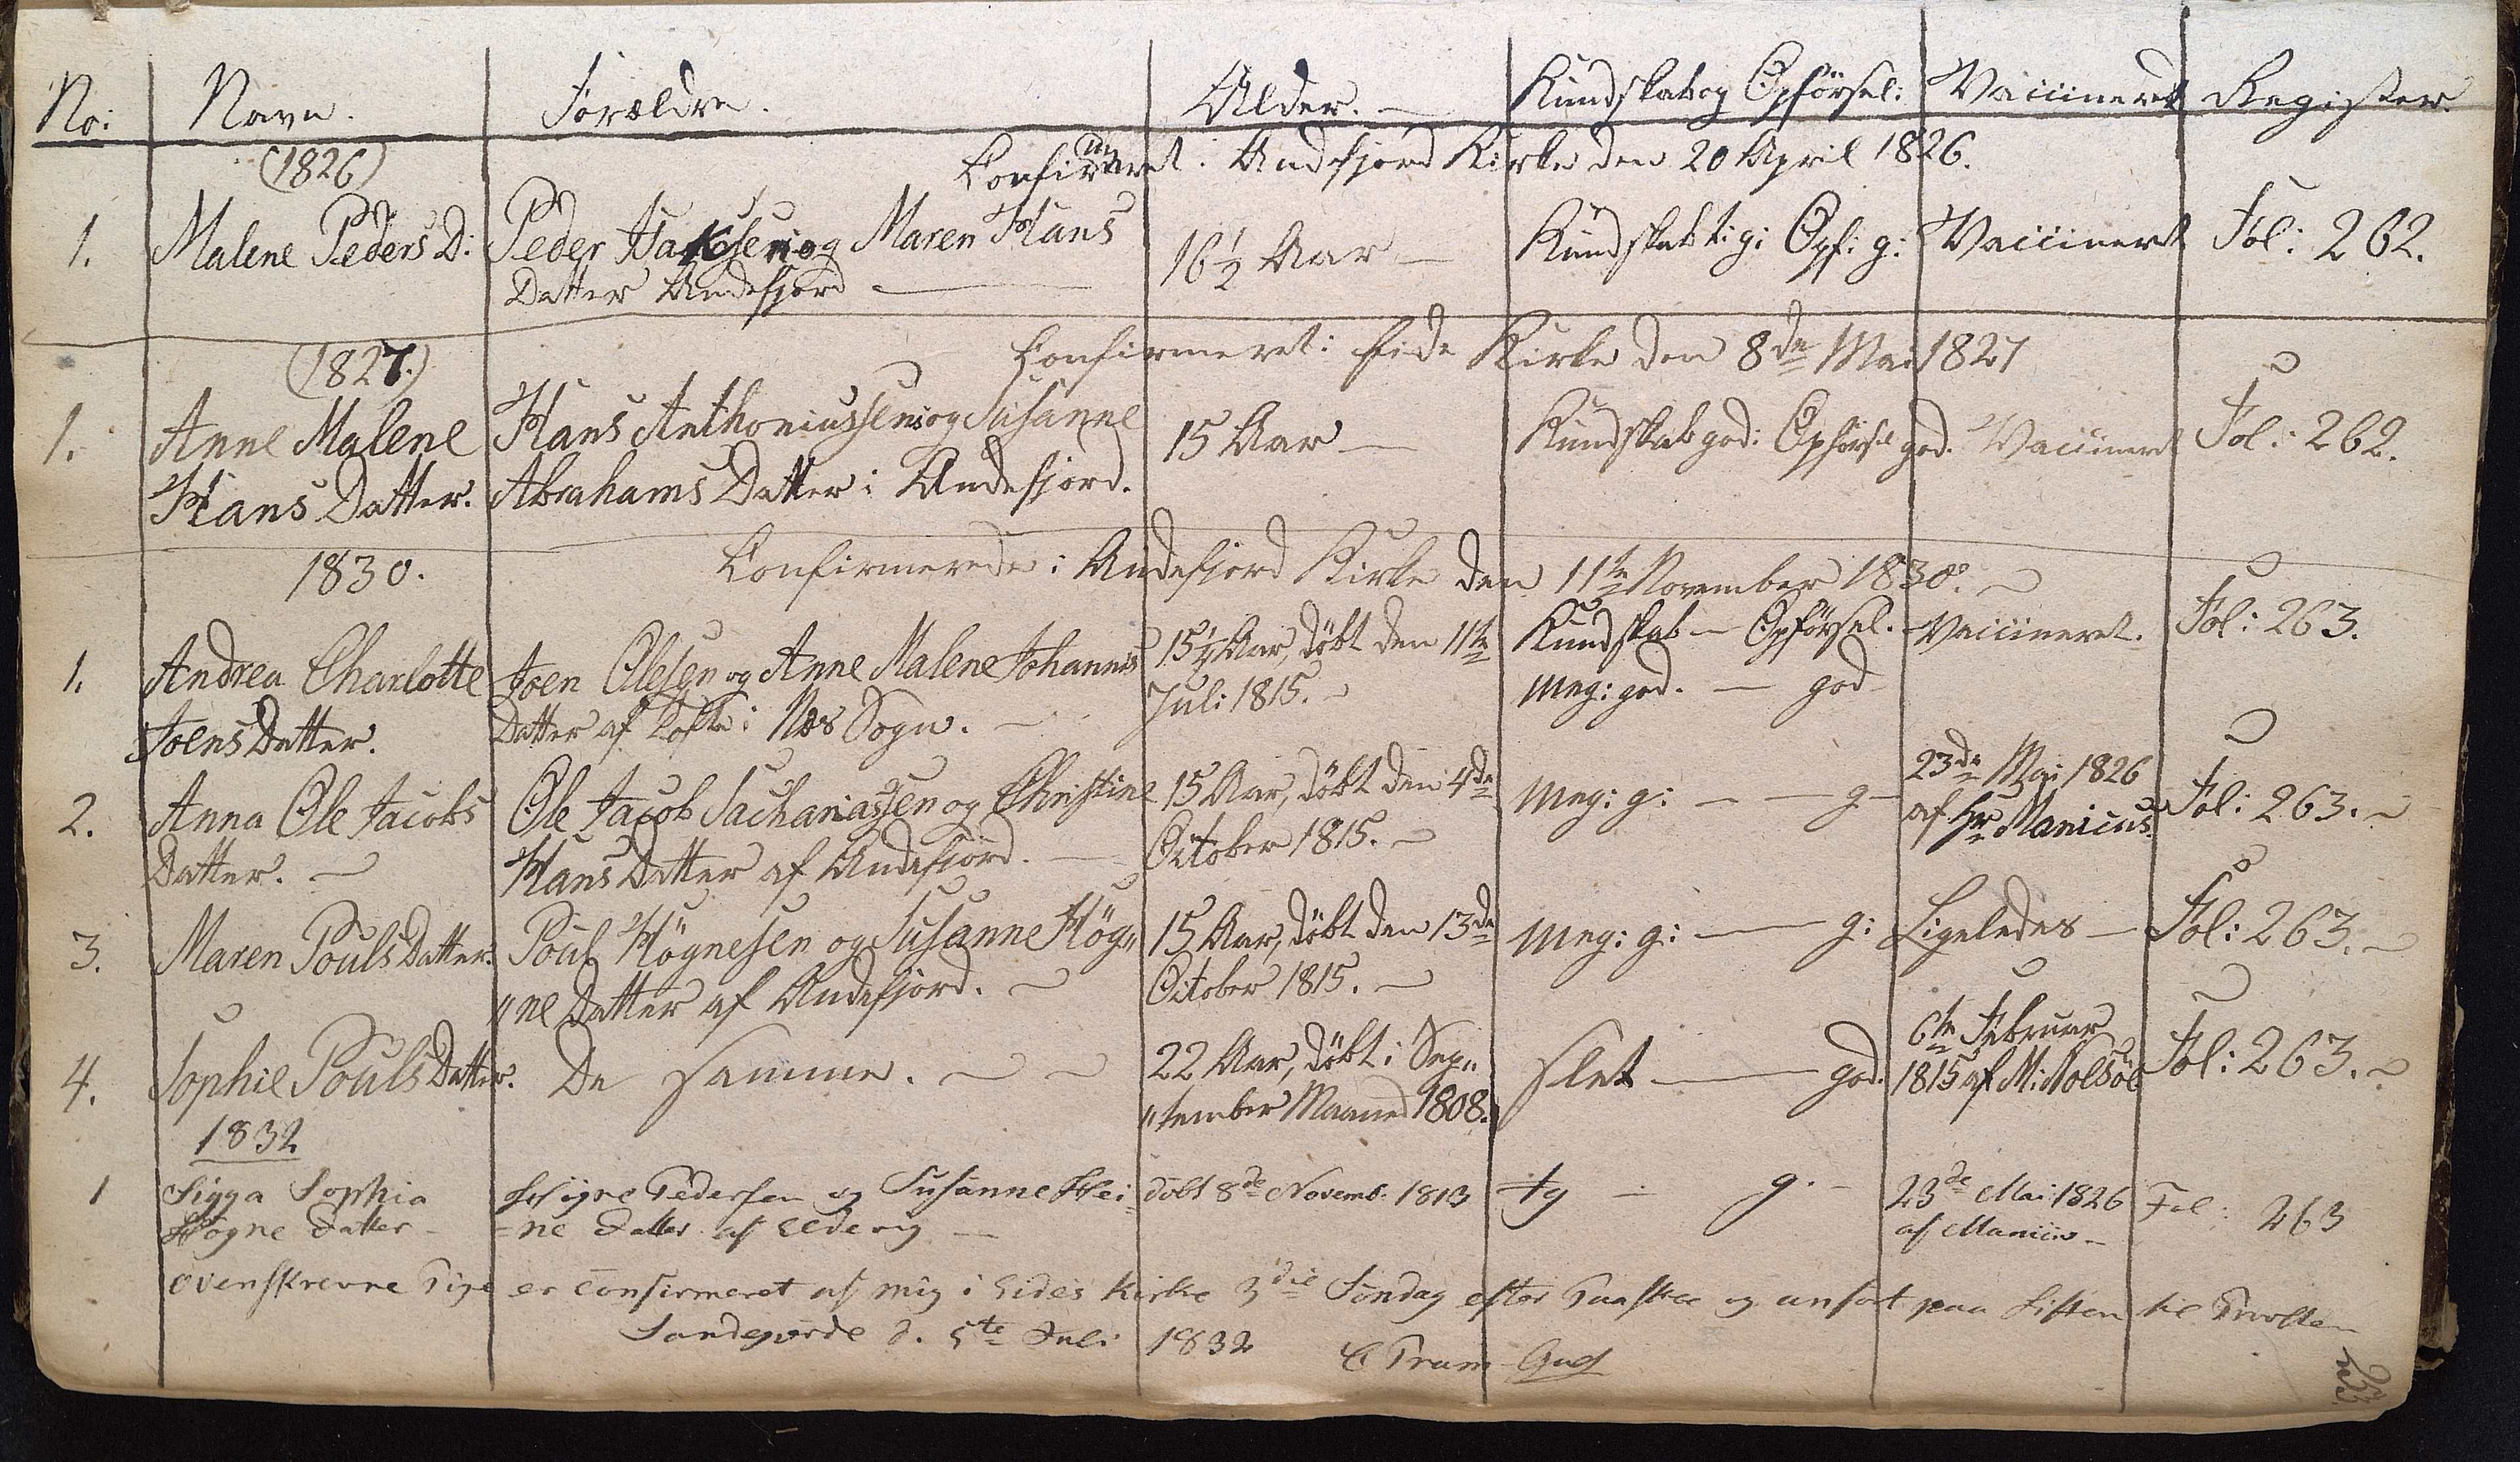 No: Navn. Forældre. Alder. — Kundskab og Opförsel: Vaccineret Register.
(1826) Confirmeret i Andefjord Kirke den 20 April 1826.
1. Malene Peders D: Peder Isaksen og Maren Hans 16½ Aar — Kundskab t: g: Opf: g: Vaccineret Fol: 262.
Datter Andefjord —
(1827.) Confirmeret i Eide Kirke den 8de Mai 1827
1. Anne Malene Hans Anthoniussen og Susanne 15 Aar — Kundskab god: Opförsel god. Vaccineret Fol: 262.
Hans Datter. Abrahams Datter i Andefjord.
1830. Confirmerede i Andefjord Kirke den 11te November 1830. —
1. Andrea Charlotte Joen Olesen og Anne Malene Johannes 15¼ Aar, döbt den 11te Kundskab — Opförsel. Vaccineret. Fol: 263.
Joens Datter. Datter af Tofte i Næs Sogn. — Juli 1815. — meg: god. — god
2. Anna Ole Jacobs Ole Jacob Sachariassen og Christine 15 Aar, döbt den 4de meg: g: — — g — 23de Mai 1826 Fol: 263. —
Datter. — Hans Datter af Andefjord. — October 1815. — af Hr Manicus.
3. Maren Pouls Datter. Poul Högnesen og Susanne Hög„ 15 Aar, döbt den 13de meg: g: — g: Ligeledes — Fol: 263. —
„ne Datter af Andefjord. — October 1815. —
4. Sophie Pouls Datter. De samme. — — 22 Aar, döbt i Sep„ slet — god. 6te Februar Fol: 263. —
„tember Maaned 1808. 1815 af M: Nolsöe
1832
1 Sigga Sophia Högne Pedersen og Susanne Hei- döbt 8de Novemb. 1813 tg — g. — 23de Mai 1826 Fol: 263
Högne Datter — -ne Datter af Elderig — af Manicus —
Ovenskrevne Pige er confirmeret af mig i Eides Kirke 3die Söndag efter Paaske og anfört paa Listen til Provsten
Sandegærde d. 5te Juli 1832 C Tram